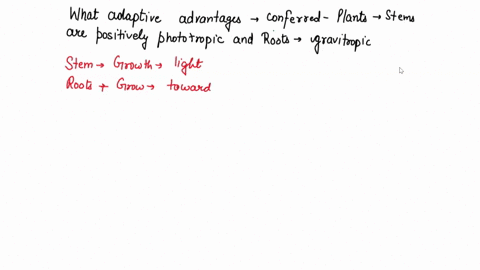 What adaptive advantages → conferred - Plants → Stems
are positively phototropic and Roots → gravitropic
Stem → Growth → light
Roots + Grow → toward